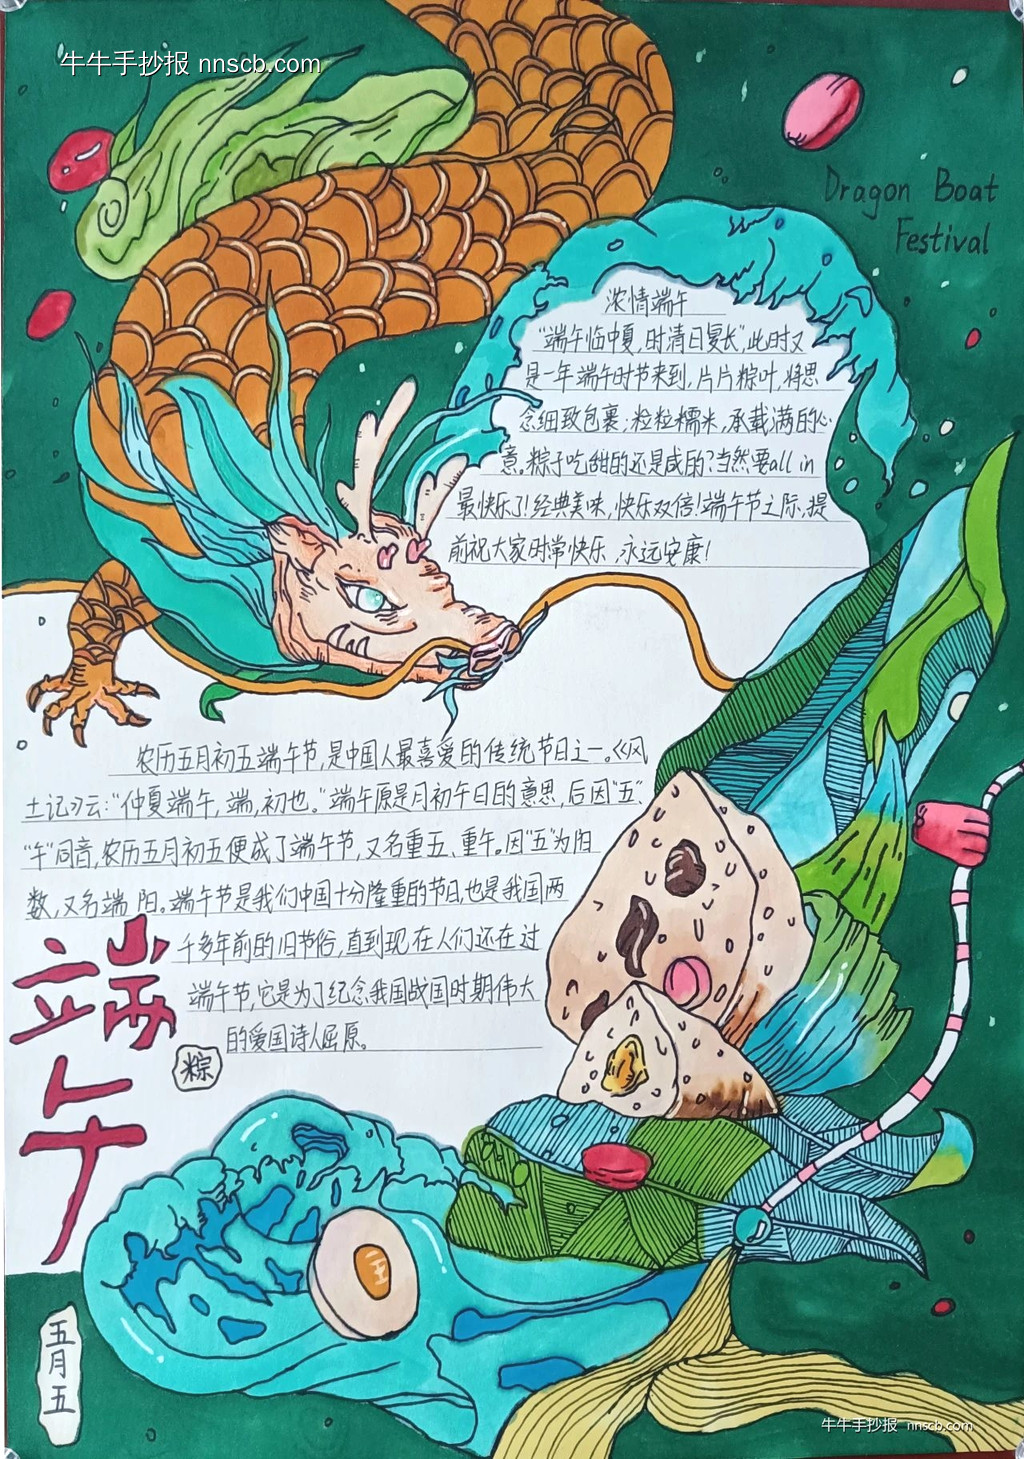 牛牛手抄报 nnscb.com
Dragon Boat
Festival
浓情端午
“端午临中夏,时清日复长”,此时又
是一年端午时节来到,片片粽叶,将思
念细致包裹;粒粒糯米,承载满的心
意。粽子吃甜的还是咸的?当然要all in
最快乐了!经典美味,快乐双倍!端午节之际,提
前祝大家时常快乐,永远安康!
农历五月初五端午节,是中国人最喜爱的传统节日之一。《风
土记》云:“仲夏端午,端,初也。”端午原是月初午日的意思,后因“五”、
“午”同音,农历五月初五便成了端午节,又名重五、重午。因“五”为阳
数,又名端阳。端午节是我们中国十分隆重的节日,也是我国两
千多年前的旧节俗,直到现在人们还在过
端午节,它是为了纪念我国战国时期伟大
的爱国诗人屈原。
端午
粽
王
五月五
牛牛手抄报 nnscb.com